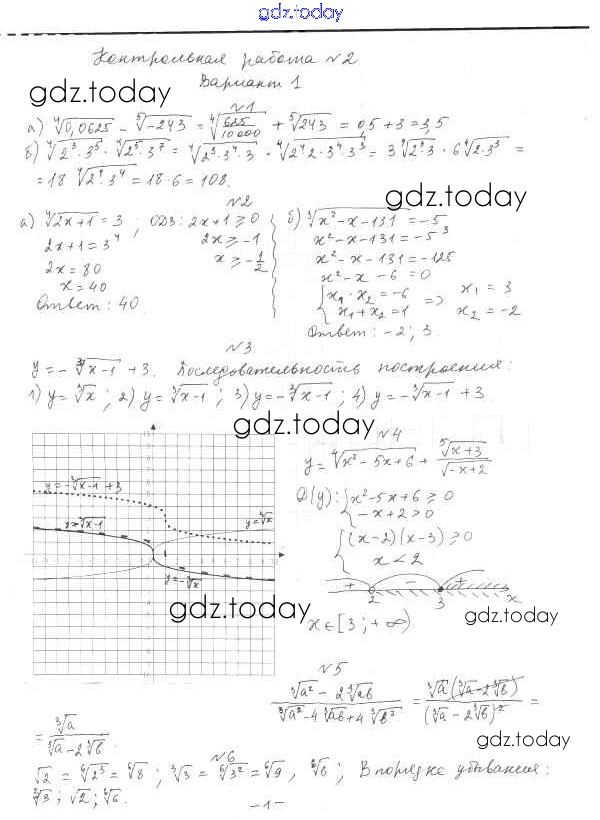 gdz.today
Контрольная работа №2
Вариант 1
gdz.today
№1
а) ⁴√0,0625 - ⁵√-243 = ⁴√625/10000 + ⁵√243 = 0,5 + 3 = 3,5
б) ⁴√2³·3⁵ · ⁴√2⁵·3⁷ =
= 18 ⁴√2⁴·3⁴ = 18·6 = 108.
gdz.today
№2
а) ⁴√2x+1 = 3 ; ОДЗ: 2x+1 ≥ 0
2x+1 = 3⁴
2x ≥ -1
2x = 80
x ≥ -1/2
x = 40
Ответ: 40.
б) ³√x²-x-131 = -5
x²-x-131 = -5³
x²-x-131 = -125
x²-x-6 = 0
x₁·x₂ = -6
x₁+x₂ = 1
=> x₁ = 3
x₂ = -2
Ответ: -2; 3.
№3
y = - ³√x-1 + 3. Последовательность построения:
1) y = ³√x ; 2) y = ³√x-1 ; 3) y = -³√x-1 ; 4) y = -³√x-1 + 3.
gdz.today
y=-³√x-1+3
y=³√x-1
y=³√x
y=-³√x
№4
y = ⁴√x²-5x+6 + ⁵√x+3/√-x+2
D(y): x²-5x+6 ≥ 0
-x+2 > 0
(x-2)(x-3) ≥ 0
x < 2
+ - +
2 3 x
gdz.today
gdz.today
x ∈ [3; +∞)
№5
³√a² - 2³√ab / ³√a² - 4³√ab + 4³√b² = ³√a(³√a - 2³√b) / (³√a - 2³√b)² =
= ³√a / ³√a - 2³√b.
gdz.today
№6
√2 = ⁶√2³ = ⁶√8 ; ³√3 = ⁶√3² = ⁶√9, ⁶√6 ; В порядке убывания:
³√3 ; √2 ; ⁶√6.
-1-